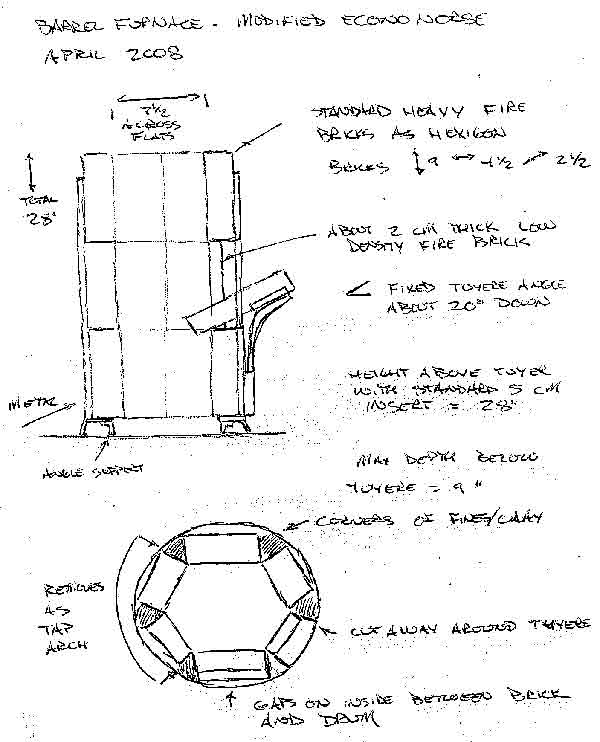 BARREL FURNACE - MODIFIED ECONO NORSE
APRIL 2008
7 1/2
ACROSS
FLATS
TOTAL
28"
STANDARD HEAVY FIRE
BRICKS AS HEXIGON
BRICKS ↕ 9 ↔ 4 1/2 ↗ 2 1/2
ABOUT 2 CM THICK LOW
DENSITY FIRE BRICK
FIXED TUYERE ANGLE
ABOUT 20° DOWN
HEIGHT ABOVE TUYER
WITH STANDARD 5 CM
INSERT = 28"
METAL
ANGLE SUPPORT
MAX DEPTH BELOW
TUYERE = 9"
CORNERS OF FINES/CLAY
AS
TAP
ARCH
CUT AWAY AROUND TUYERE
GAPS ON INSIDE BETWEEN BRICK
AND DRUM